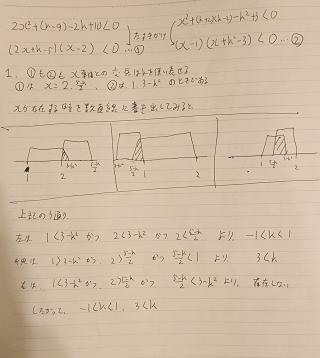 2x²+(k-9)x-2k+10<0
(2x+k-5)(x-2)<0…①
(x-1)(x+k²-3)<0…②
1. ①も②もx軸との
①は x=2, (5-k)/2 、②は 1, 3-k² のときである
xが存在する時を数直線に書き出してみると
1 2 (5-k)/2
1 2
1 2
上記の3通り
左は 1<3-k² かつ 2<3-k² かつ 2<(5-k)/2 より、-1<k<1
中央は、1>3-k² かつ 2>(5-k)/2 かつ (5-k)/2<1 より 3<k
右は、1<3-k² かつ 2>(5-k)/2 かつ (5-k)/2<3-k² より、存在しない
したがって、-1<k<1, 3<k